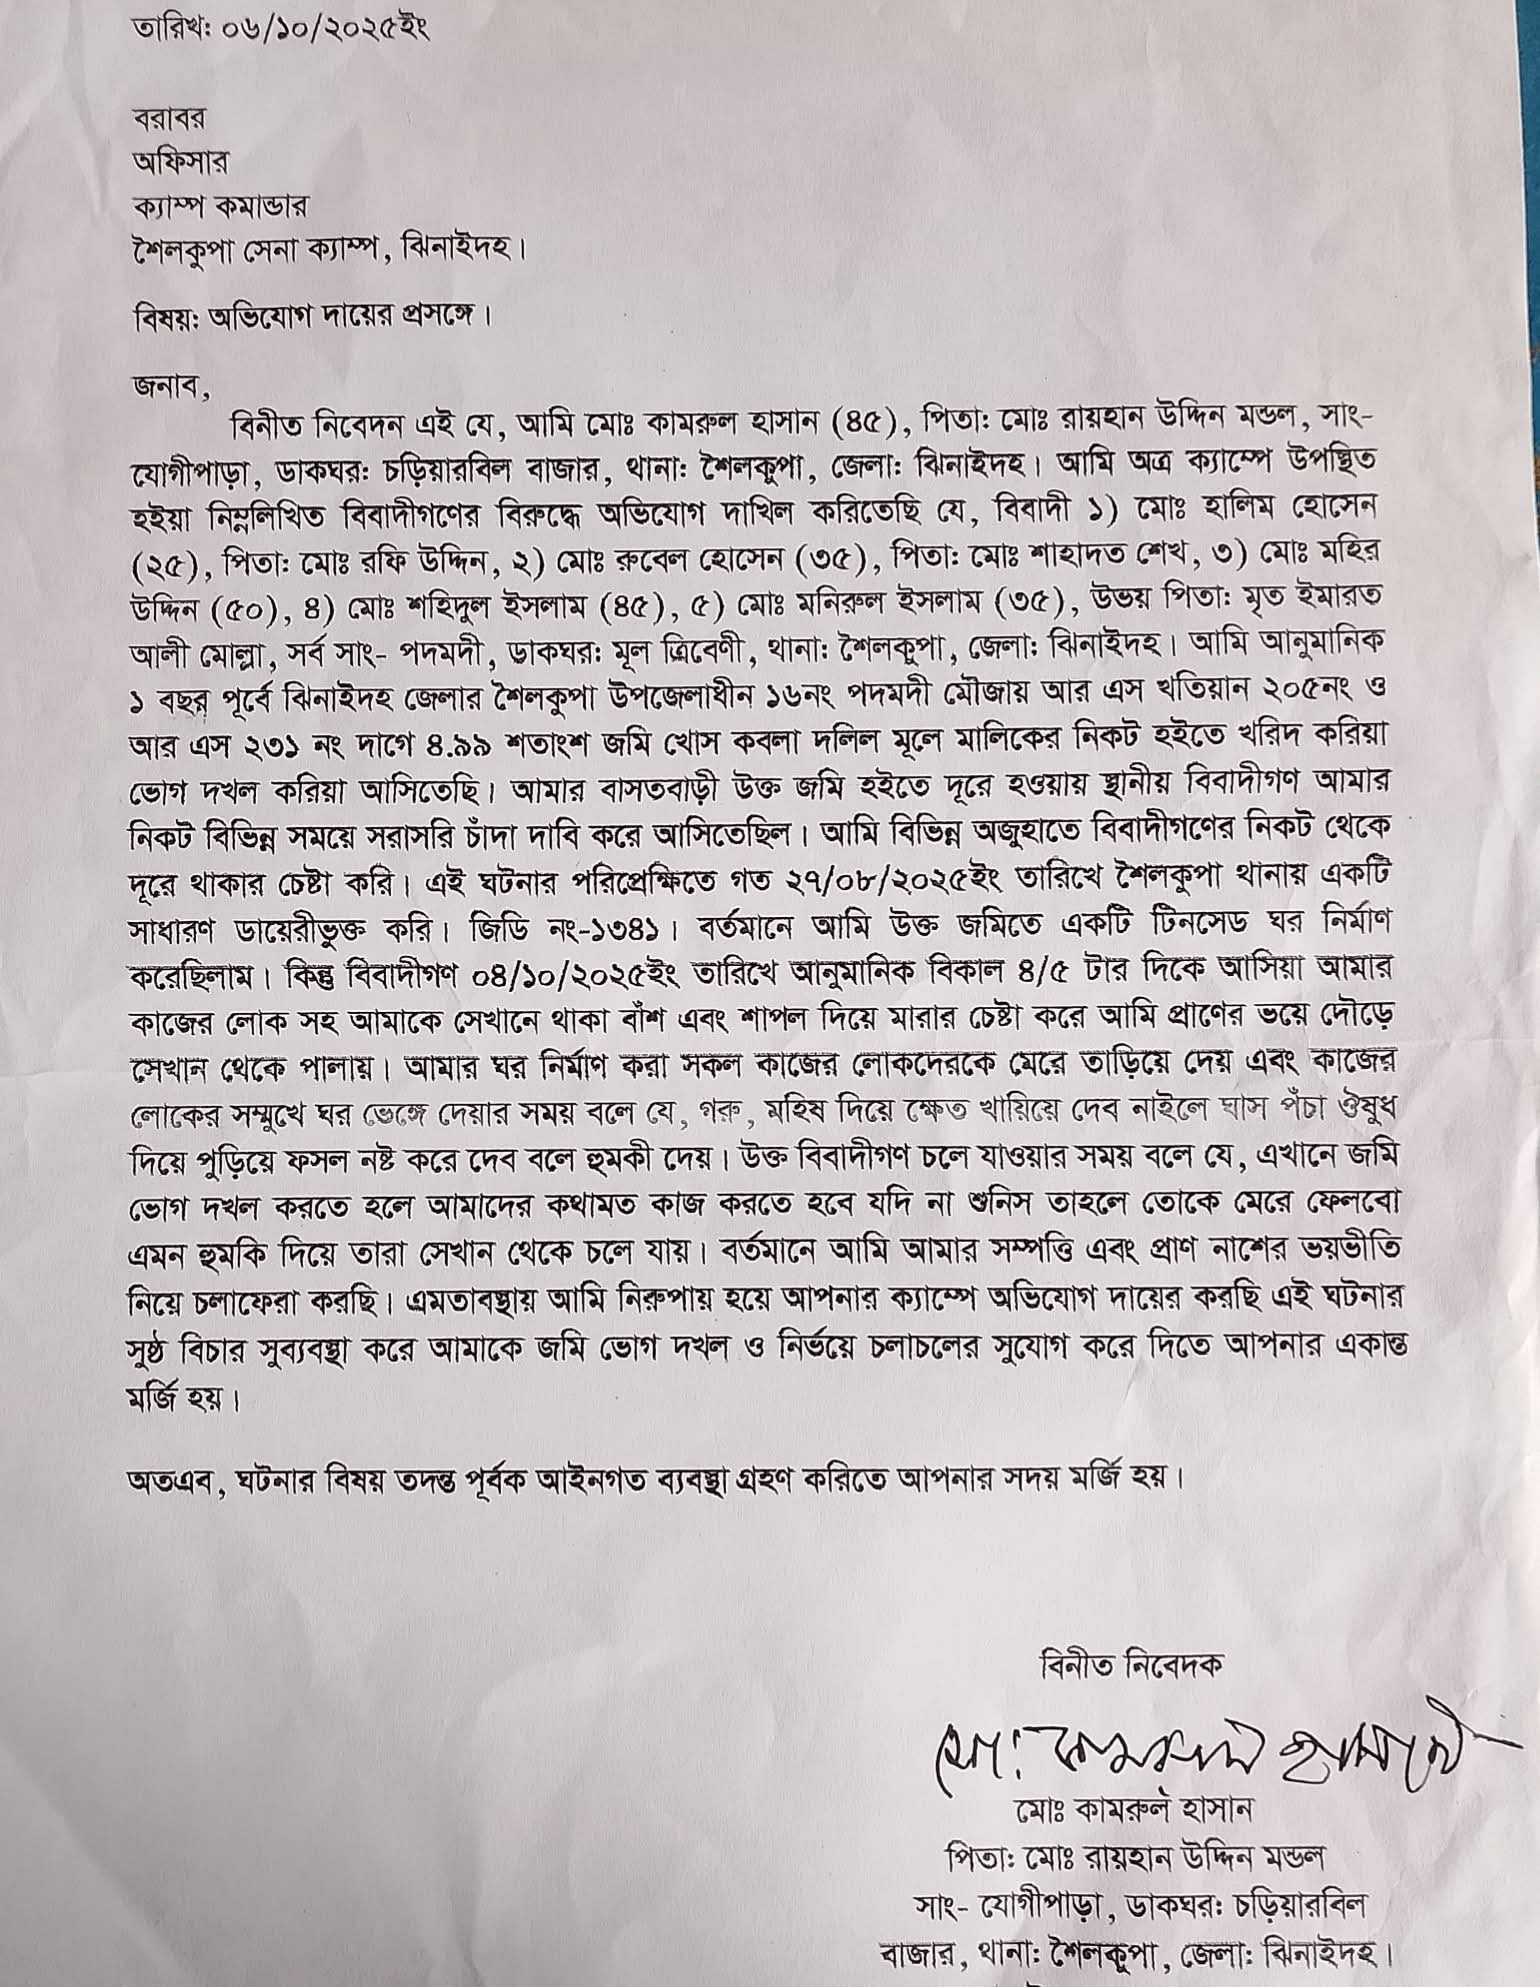 তারিখঃ ০৬/১০/২০২৫ইং
বরাবর
অফিসার
ক্যাম্প কমান্ডার
শৈলকুপা সেনা ক্যাম্প, ঝিনাইদহ।
বিষয়ঃ অভিযোগ দায়ের প্রসঙ্গে।
জনাব,
বিনীত নিবেদন এই যে, আমি মোঃ কামরুল হাসান (৪৫), পিতাঃ মোঃ রায়হান উদ্দিন মন্ডল, সাং-
যোগীপাড়া, ডাকঘরঃ চড়িয়ারবিল বাজার, থানাঃ শৈলকুপা, জেলাঃ ঝিনাইদহ। আমি অত্র ক্যাম্পে উপস্থিত
হইয়া নিম্নলিখিত বিবাদীগণের বিরুদ্ধে অভিযোগ দাখিল করিতেছি যে, বিবাদী ১) মোঃ হালিম হোসেন
(২৫), পিতাঃ মোঃ রফি উদ্দিন, ২) মোঃ রুবেল হোসেন (৩৫), পিতাঃ মোঃ শাহাদত শেখ, ৩) মোঃ মহির
উদ্দিন (৫০), ৪) মোঃ শহিদুল ইসলাম (৪৫), ৫) মোঃ মনিরুল ইসলাম (৩৫), উভয় পিতাঃ মৃত ইমারত
আলী মোল্লা, সর্ব সাং- পদমদী, ডাকঘরঃ মূল ত্রিবেণী, থানাঃ শৈলকুপা, জেলাঃ ঝিনাইদহ। আমি আনুমানিক
১ বছর পূর্বে ঝিনাইদহ জেলার শৈলকুপা উপজেলাধীন ১৬নং পদমদী মৌজায় আর এস খতিয়ান ২০৫নং ও
আর এস ২৩১ নং দাগে ৪.৯৯ শতাংশ জমি খোস কবলা দলিল মূলে মালিকের নিকট হইতে খরিদ করিয়া
ভোগ দখল করিয়া আসিতেছি। আমার বাসতবাড়ী উক্ত জমি হইতে দূরে হওয়ায় স্থানীয় বিবাদীগণ আমার
নিকট বিভিন্ন সময়ে সরাসরি চাঁদা দাবি করে আসিতেছিল। আমি বিভিন্ন অজুহাতে বিবাদীগণের নিকট থেকে
দূরে থাকার চেষ্টা করি। এই ঘটনার পরিপ্রেক্ষিতে গত ২৭/০৮/২০২৫ইং তারিখে শৈলকুপা থানায় একটি
সাধারণ ডায়েরীভুক্ত করি। জিডি নং-১৩৪১। বর্তমানে আমি উক্ত জমিতে একটি টিনসেড ঘর নির্মাণ
করেছিলাম। কিন্তু বিবাদীগণ ০৪/১০/২০২৫ইং তারিখে আনুমানিক বিকাল ৪/৫ টার দিকে আসিয়া আমার
কাজের লোক সহ আমাকে সেখানে থাকা বাঁশ এবং শাপল দিয়ে মারার চেষ্টা করে আমি প্রাণের ভয়ে দৌড়ে
সেখান থেকে পালায়। আমার ঘর নির্মাণ করা সকল কাজের লোকদেরকে মেরে তাড়িয়ে দেয় এবং কাজের
লোকের সম্মুখে ঘর ভেঙ্গে দেয়ার সময় বলে যে, গরু, মহিষ দিয়ে ক্ষেত খায়িয়ে দেব নাইলে ঘাস পঁচা ঔষুধ
দিয়ে পুড়িয়ে ফসল নষ্ট করে দেব বলে হুমকী দেয়। উক্ত বিবাদীগণ চলে যাওয়ার সময় বলে যে, এখানে জমি
ভোগ দখল করতে হলে আমাদের কথামত কাজ করতে হবে যদি না শুনিস তাহলে তোকে মেরে ফেলবো
এমন হুমকি দিয়ে তারা সেখান থেকে চলে যায়। বর্তমানে আমি আমার সম্পত্তি এবং প্রাণ নাশের ভয়ভীতি
নিয়ে চলাফেরা করছি। এমতাবস্থায় আমি নিরুপায় হয়ে আপনার ক্যাম্পে অভিযোগ দায়ের করছি এই ঘটনার
সুষ্ঠ বিচার সুব্যবস্থা করে আমাকে জমি ভোগ দখল ও নির্ভয়ে চলাচলের সুযোগ করে দিতে আপনার একান্ত
মর্জি হয়।
অতএব, ঘটনার বিষয় তদন্ত পূর্বক আইনগত ব্যবস্থা গ্রহণ করিতে আপনার সদয় মর্জি হয়।
বিনীত নিবেদক
মোঃ কামরুল হাসান
মোঃ কামরুল হাসান
পিতাঃ মোঃ রায়হান উদ্দিন মন্ডল
সাং- যোগীপাড়া, ডাকঘরঃ চড়িয়ারবিল
বাজার, থানাঃ শৈলকুপা, জেলাঃ ঝিনাইদহ।